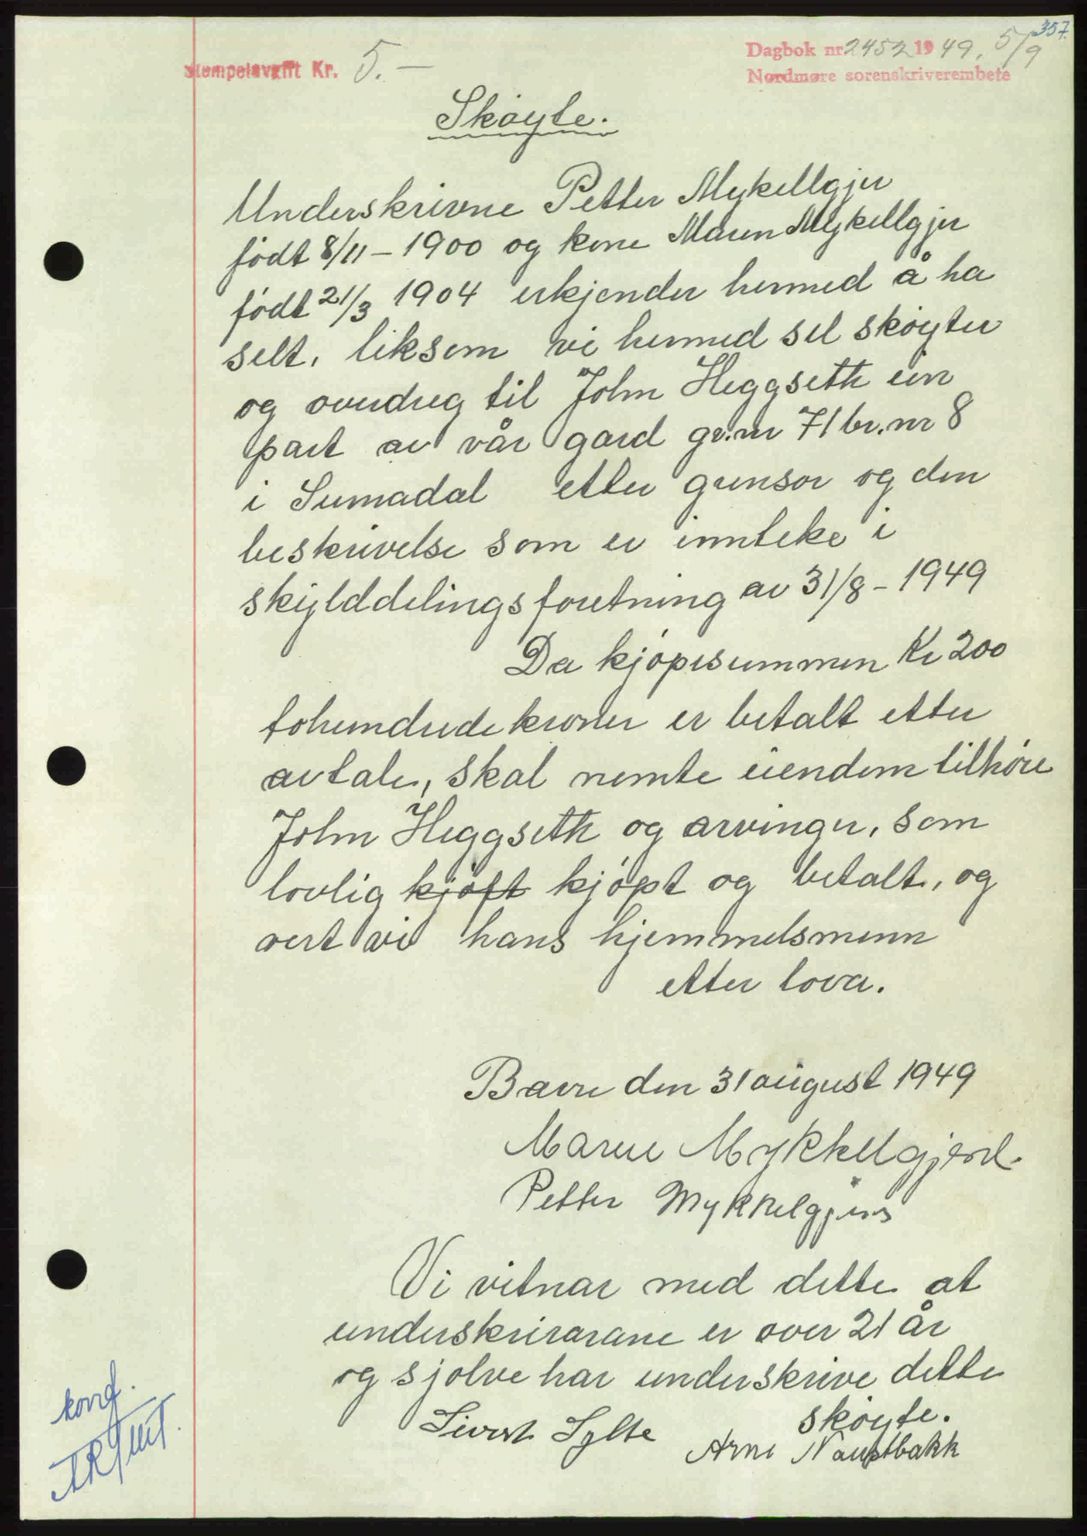 357.
Stempelavgift Kr. 5.—
Dagbok nr 2452 1949. 5/9
Nordmøre sorenskriverembete
Skøyte.
Underskrivne Petter Mykellgjer
født 8/11 – 1900 og kone Maren Mykellgjer
født 21/3 1904 erkjender hermed å ha
selt, liksom vi hermed sel skøyter
og overdreg til John Heggseth ein
part av vår gard gr.nr 71 br.nr 8
i Surnadal etter grensor og den
beskrivelse som er innteke i
skylddelingsforetning av 31/8 – 1949
Da kjøpesummen Kr 200
tohundrede kroner er betalt etter
avtale, skal nemte eiendom tilhøre
John Heggseth og arvinger, som
lovlig kjøft kjøpt og betalt, og
vert vi hans hjemmelsmenn
etter lova.
Bævre den 31 august 1949
Maren Mykkelgjerd.
Petter Mykkelgjerd
Vi vitnar med dette at
underskrivarane er over 21 år
og sjølve har underskrive dette
skøyte.
Sivert Sylte
Arne Naustbakk
konf.